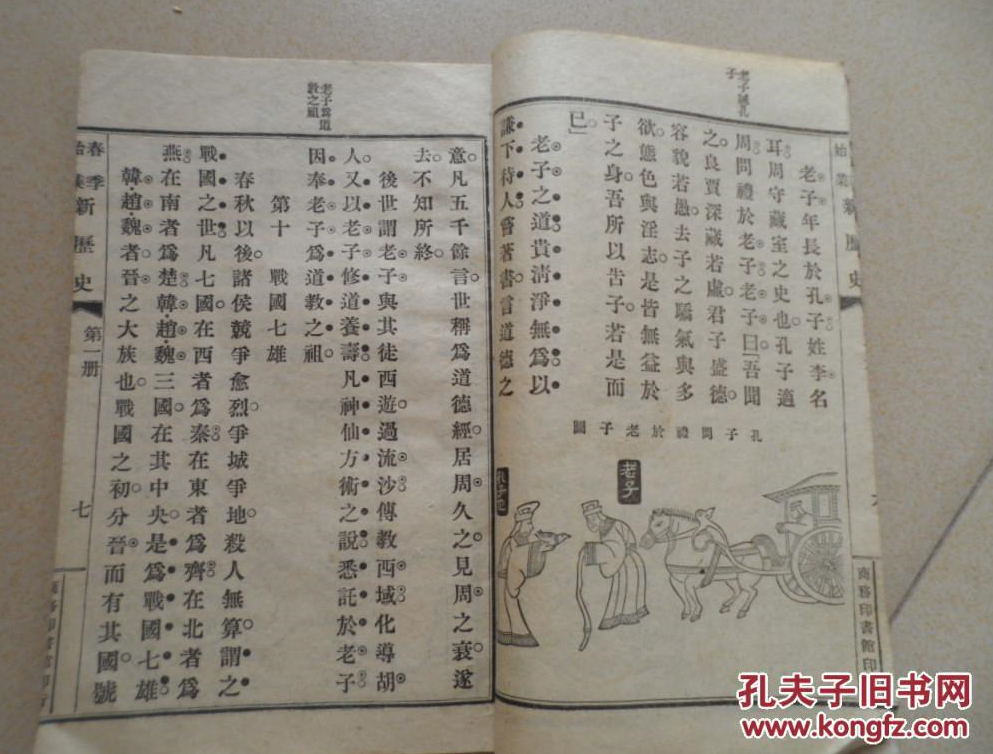 老子誡孔
子
始業新歷史
老子年長於孔子姓李名
耳周守藏室之史也孔子適
周問禮於老子老子曰「吾聞
之良賈深藏若虛君子盛德
容貌若愚去子之驕氣與多
欲態色與淫志是皆無益於
子之身吾所以告子若是而
已」
老子之道貴清淨無爲以
謙下待人嘗著書言道德之
孔子問禮於老子圖
老子
商務印書館印
老子爲道
教之祖
意凡五千餘言世稱爲道德經居周久之見周之衰遂
去不知所終
後世謂老子與其徒西遊過流沙傳教西域化導胡
人又以老子修道養壽凡神仙方術之說悉託於老子
因奉老子爲道教之祖
第十 戰國七雄
春秋以後諸侯競爭愈烈爭城爭地殺人無算謂之
戰國之世凡七國在西者爲秦在東者爲齊在北者爲
燕在南者爲楚韓趙魏三國在其中央是爲戰國七雄
韓趙魏者晉之大族也戰國之初分晉而有其國號
春季
始業新歷史
第一册
七
商務印書館印行
孔夫子旧书网
www.kongfz.com